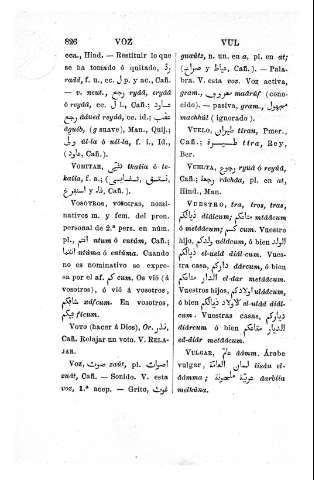 826 VOZ VUL
cea., Hind. — Restituir lo que
se ha tomado ó quitado, رد
radd, f. u., cc. ل p. y ac., Cañ.
— v. neut., رجع ryáâ, eryáâ
ó reyáâ, cc. ل l., Cañ.; عاود
رجع âáued reyáâ, cc. id.; عقب
âguéb, (g suave), Man., Quij.;
ولى úl-la ó uíl-la, f. i., Id.,
(عاود, Cañ.).
VOMITAR,
kaiía, f. a.;
, Cañ.).
VOSOTROS, vosotras, nomi-
nativos m. y fem. del pron.
personal de 2.ª pers. en núm.
pl., انتم ntúm ó entúm, Cañ.;
انتما ntúma ó entúma. Cuando
no es nominativo se expre-
sa por el af. كم cum. Os vió (á
vosotros), ó vió á vosotros,
شافكم xáfcum. En vosotros,
فيكم fícum.
VOTO (hacer á Dios), Or., نذر,
Cañ. Relajar un voto. V. RELA-
JAR.
VOZ, صوت zaút, pl. اصوات
zuát, Cañ. — Sonido. V. esta
voz, 1.ª acep. — Grito, غوث
guœüts, n. un. en a, pl. en at;
(عياط y صراخ, Cañ.). — Pala-
bra. V. esta voz. Voz activa,
gram., معروف maârúf (cono-
cido). — pasiva, gram., مجهول
machhúl (ignorado).
VUELO, طيران tirau, Pmer.,
Cañ.; طيرة tira, Rey,
Ber.
VUELTA, رجوع ryuâ ó reyúâ,
Cañ.; رجعة ráchâa, pl. en at,
Hind., Man.
VUESTRO, tra, tros, tras,
ديالكم diálcum; متاعكم mtáâcum
ó metáâcum; كم cum. Vuestro
hijo, ولدكم uáldcum, ó bien الولد
ديالكم el-uald diál-cum. Vues-
tra casa, داركم dárcum, ó bien
الدار متاعكم el-dar metáâcum.
Vuestros hijos, اولادكم uládcum,
ó bien الاولاد ديالكم el-ulád diál-
cum. Vuestras casas, دياركم
diárcum ó bien الديار متاعكم
ed-diár metáâcum.
VULGAR, عام âámm. Árabe
vulgar, لسان العامة lisán el-
âámma; عربية ملحونة âarbíia
melhúna.